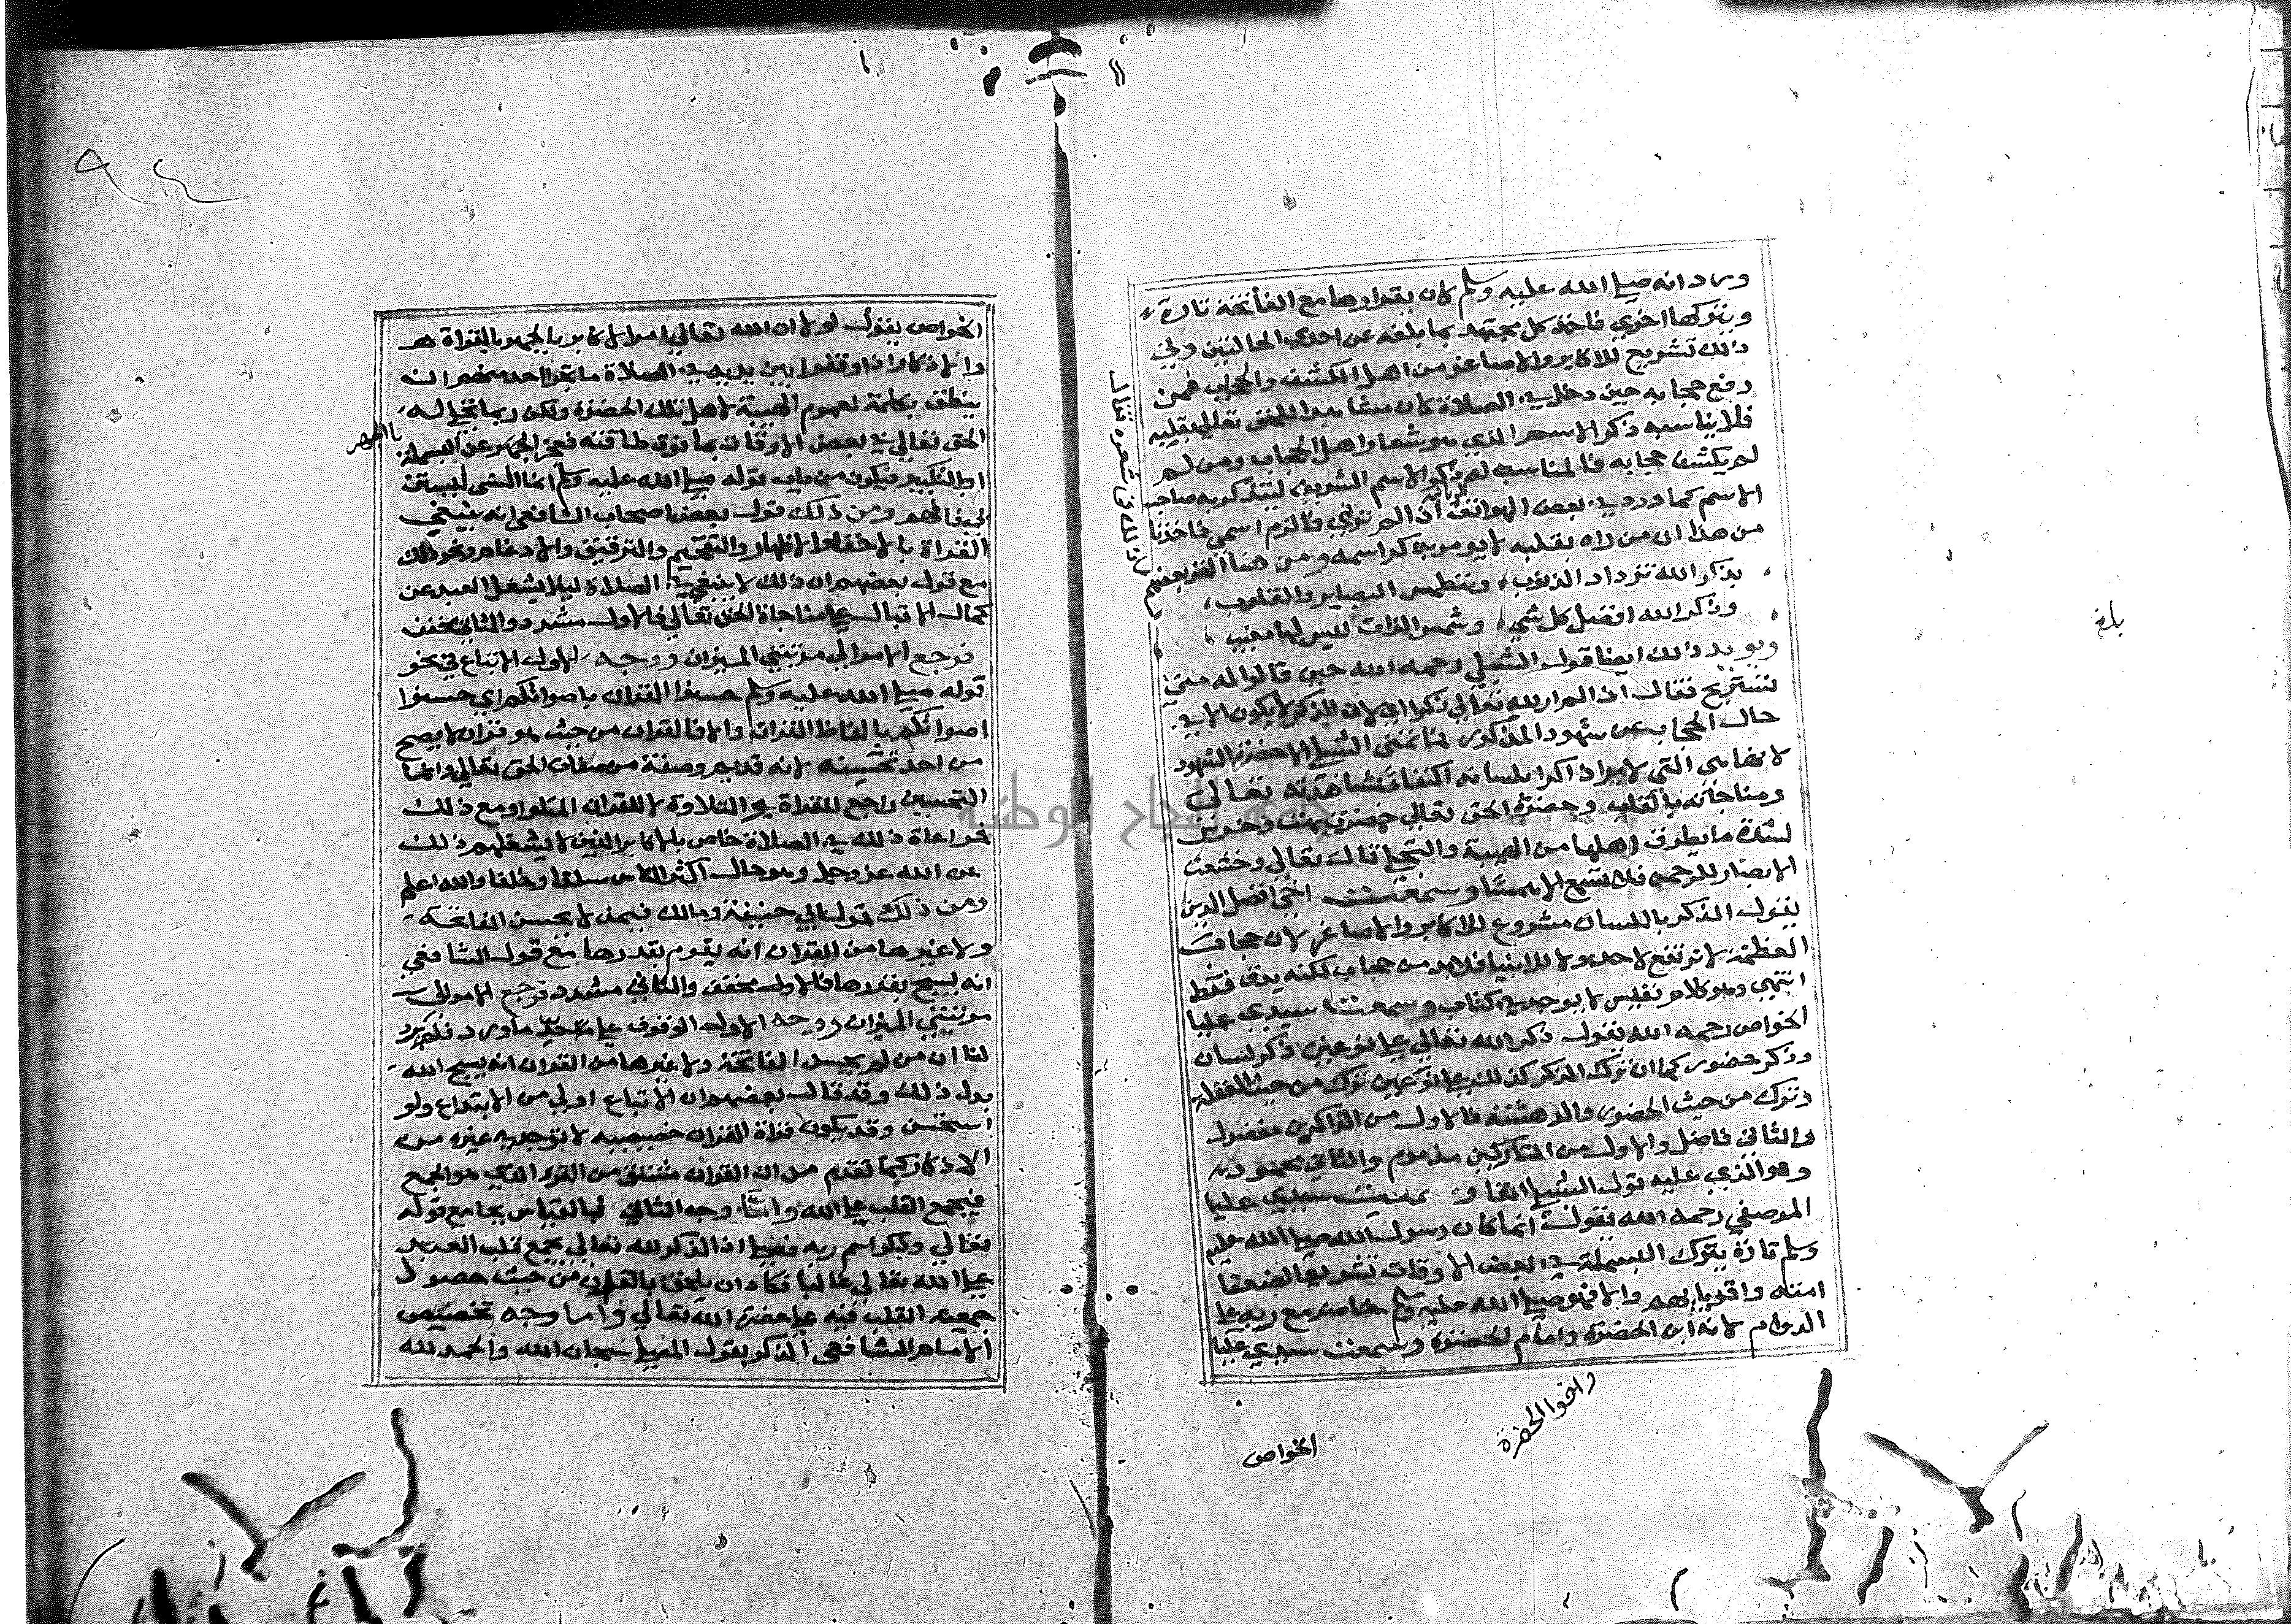 ورد انه صلى الله عليه وسلم كان يقراوها مع الفاتحة تارة
ويتركها اخري فاخذ كل مجتهد بما بلغه عن احدي الحالتين وفي
ذلك تشريع للاكابر والاصاغر من اهل الكشف والحجاب فمن
رفع حجابه حين دخل في الصلاة كان مشاهدا للحق تعالي بقلبه
فلا يناسبه ذكر الاسم الذي هو شعار اهل الحجاب ومن لم
يكشف حجابه فالمناسب له ذكر الاسم الشريف ليتذكر به صاحب
الاسم كما ورد في بعض الهواتف الربانية اذا لم ترني فالزم اسمي فاخذنا
من هذا ان من راه بقلبه لا يومر بذكر اسمه ومن هنا انشد بعضهم
بذكر الله تزداد الذنوب وتنطمس البصاير والقلوب
وذكر الله افضل كل شي وشمس الذات ليس لها مغيب
ويويد ذلك ايضا قول الشبلي رحمه الله حين قالوا له متي
تستريح فقال اذا لم ار لله تعالي ذاكرا اي لان الذكر لا يكون الا في
حال الحجاب عن شهود المذكور فما تمني الشبلي الا حضرة الشهود
لانها هي التي لا يري ذاكرا بلسانه اكتفا بمشاهدته تعالي
ومناجاته بالقلب وحضرة الحق تعالي حضرة بهت وخرس
لشدة ما يطرق اهلها من الهيبة والتجلي قال تعالي وخشعت
الاصوات للرحمن فلا تسمع الا همسا وسمعت اخي افضل الدين
يقول الذكر باللسان مشروع للاكابر والاصاغر لان حجاب
العظمة لا يرتفع لاحد ولا للانبيا فلا بد من حجاب لكنه يدق فقط
انتهي وهو كلام نفيس لا يوجد في كتاب وسمعت سيدي عليا
الخواص رحمه الله يقول ذكر الله تعالي علي نوعين ذكر لسان
وذكر حضور كما ان ترك الذكر كذلك علي نوعين ترك من حيث الغفلة
وترك من حيث الحضور والدهشة فالاول من الذاكرين مفضول
والثاني فاضل والاول من التاركين مذموم والثاني محمود
وهو الذي عليه قول الشبلي انفا وسمعت سيدي عليا
المرصفي رحمه الله يقول انما كان رسول الله صلي الله عليه
وسلم تارة يترك البسملة في بعض الاوقات تشريعا لضعفا
امته واقويايهم والا فهو صلي الله عليه وسلم حاضر مع ربه علي
الدوام لانه ابن الحضرة وامام الحضرة وسمعت سيدي عليا
واخو الحضرة
الخواص
بلغ
الخواص يقول لولا ان الله تعالي امر الاكابر بالجهر بالقراة
والاذكار اذا وقفوا بين يديه في الصلاة ما تجرا احد منهم انه
ينطق بكلمة لعموم الهيبة لاهل تلك الحضرة ولكن ربما تجلي له
الحق تعالي في بعض الاوقات بما فوق طاقته فعجز عن الجهر بالبسملة
او بالتكبير فيكون من باب قوله صلي الله عليه وسلم انما انسي ليستن
بي فافهم ومن ذلك قول بعض اصحاب الشافعي انه ينبغي
القراة بالاخفا والاظهار والتفخيم والترقيق والادغام ونحو ذلك
مع قول بعضهم ان ذلك لا ينبغي في الصلاة ليلا يشغل العبد عن
كمال الاقبال علي مناجاة الحق تعالي فالاول مشدد والثاني مخفف
فرجع الامر الي مرتبتي الميزان ووجه الاول الاتباع في نحو
قوله صلي الله عليه وسلم حسنوا القران باصواتكم اي حسنوا
اصواتكم بالفاظ القران والا فالقران من حيث هو قران لا يصح
من احد تحسينه لانه قديم وصفة من صفات الحق تعالي وانما
التحسين راجع للقراة والتلاوة لا للقران المتلو ومع ذلك
فمراعاة ذلك في الصلاة خاص بالاكابر الذين لا يشغلهم ذلك
عن الله عز وجل وهو حال اكثر الناس سلفا وخلفا والله اعلم
ومن ذلك قول ابي حنيفة ومالك فيمن لا يحسن الفاتحة
ولا غيرها من القران انه يقوم بقدرها مع قول الشافعي
انه يسبح بقدرها فالاول مخفف والثاني مشدد فرجع الامر الي
مرتبتي الميزان ووجه الاول الوقوف علي حد ما ورد فلم يرد
لنا ان من لم يحسن الفاتحة ولا غيرها من القران انه يسبح الله
بدل ذلك وقد قال بعضهم ان الاتباع اولي من الابتداع ولو
استحسن وقد يكون قراة القران خصيصيه لا توجد في غيره من
الاذكار كما تقدم من ان القران مشتق من القرء الذي هو الجمع
فيجمع القلب علي الله واما وجه الثاني فبالقياس بجامع قوله
تعالي وذكر اسم ربه فصلي اذ الذكر لله تعالي يجمع قلب العبد
علي الله تعالي غالبا فكاد ان يلحق بالقران من حيث حصول
جمعية القلب فيه علي حضرة الله تعالي واما وجه تخصيص
الامام الشافعي الذكر بقول المصلي سبحان الله والحمد لله